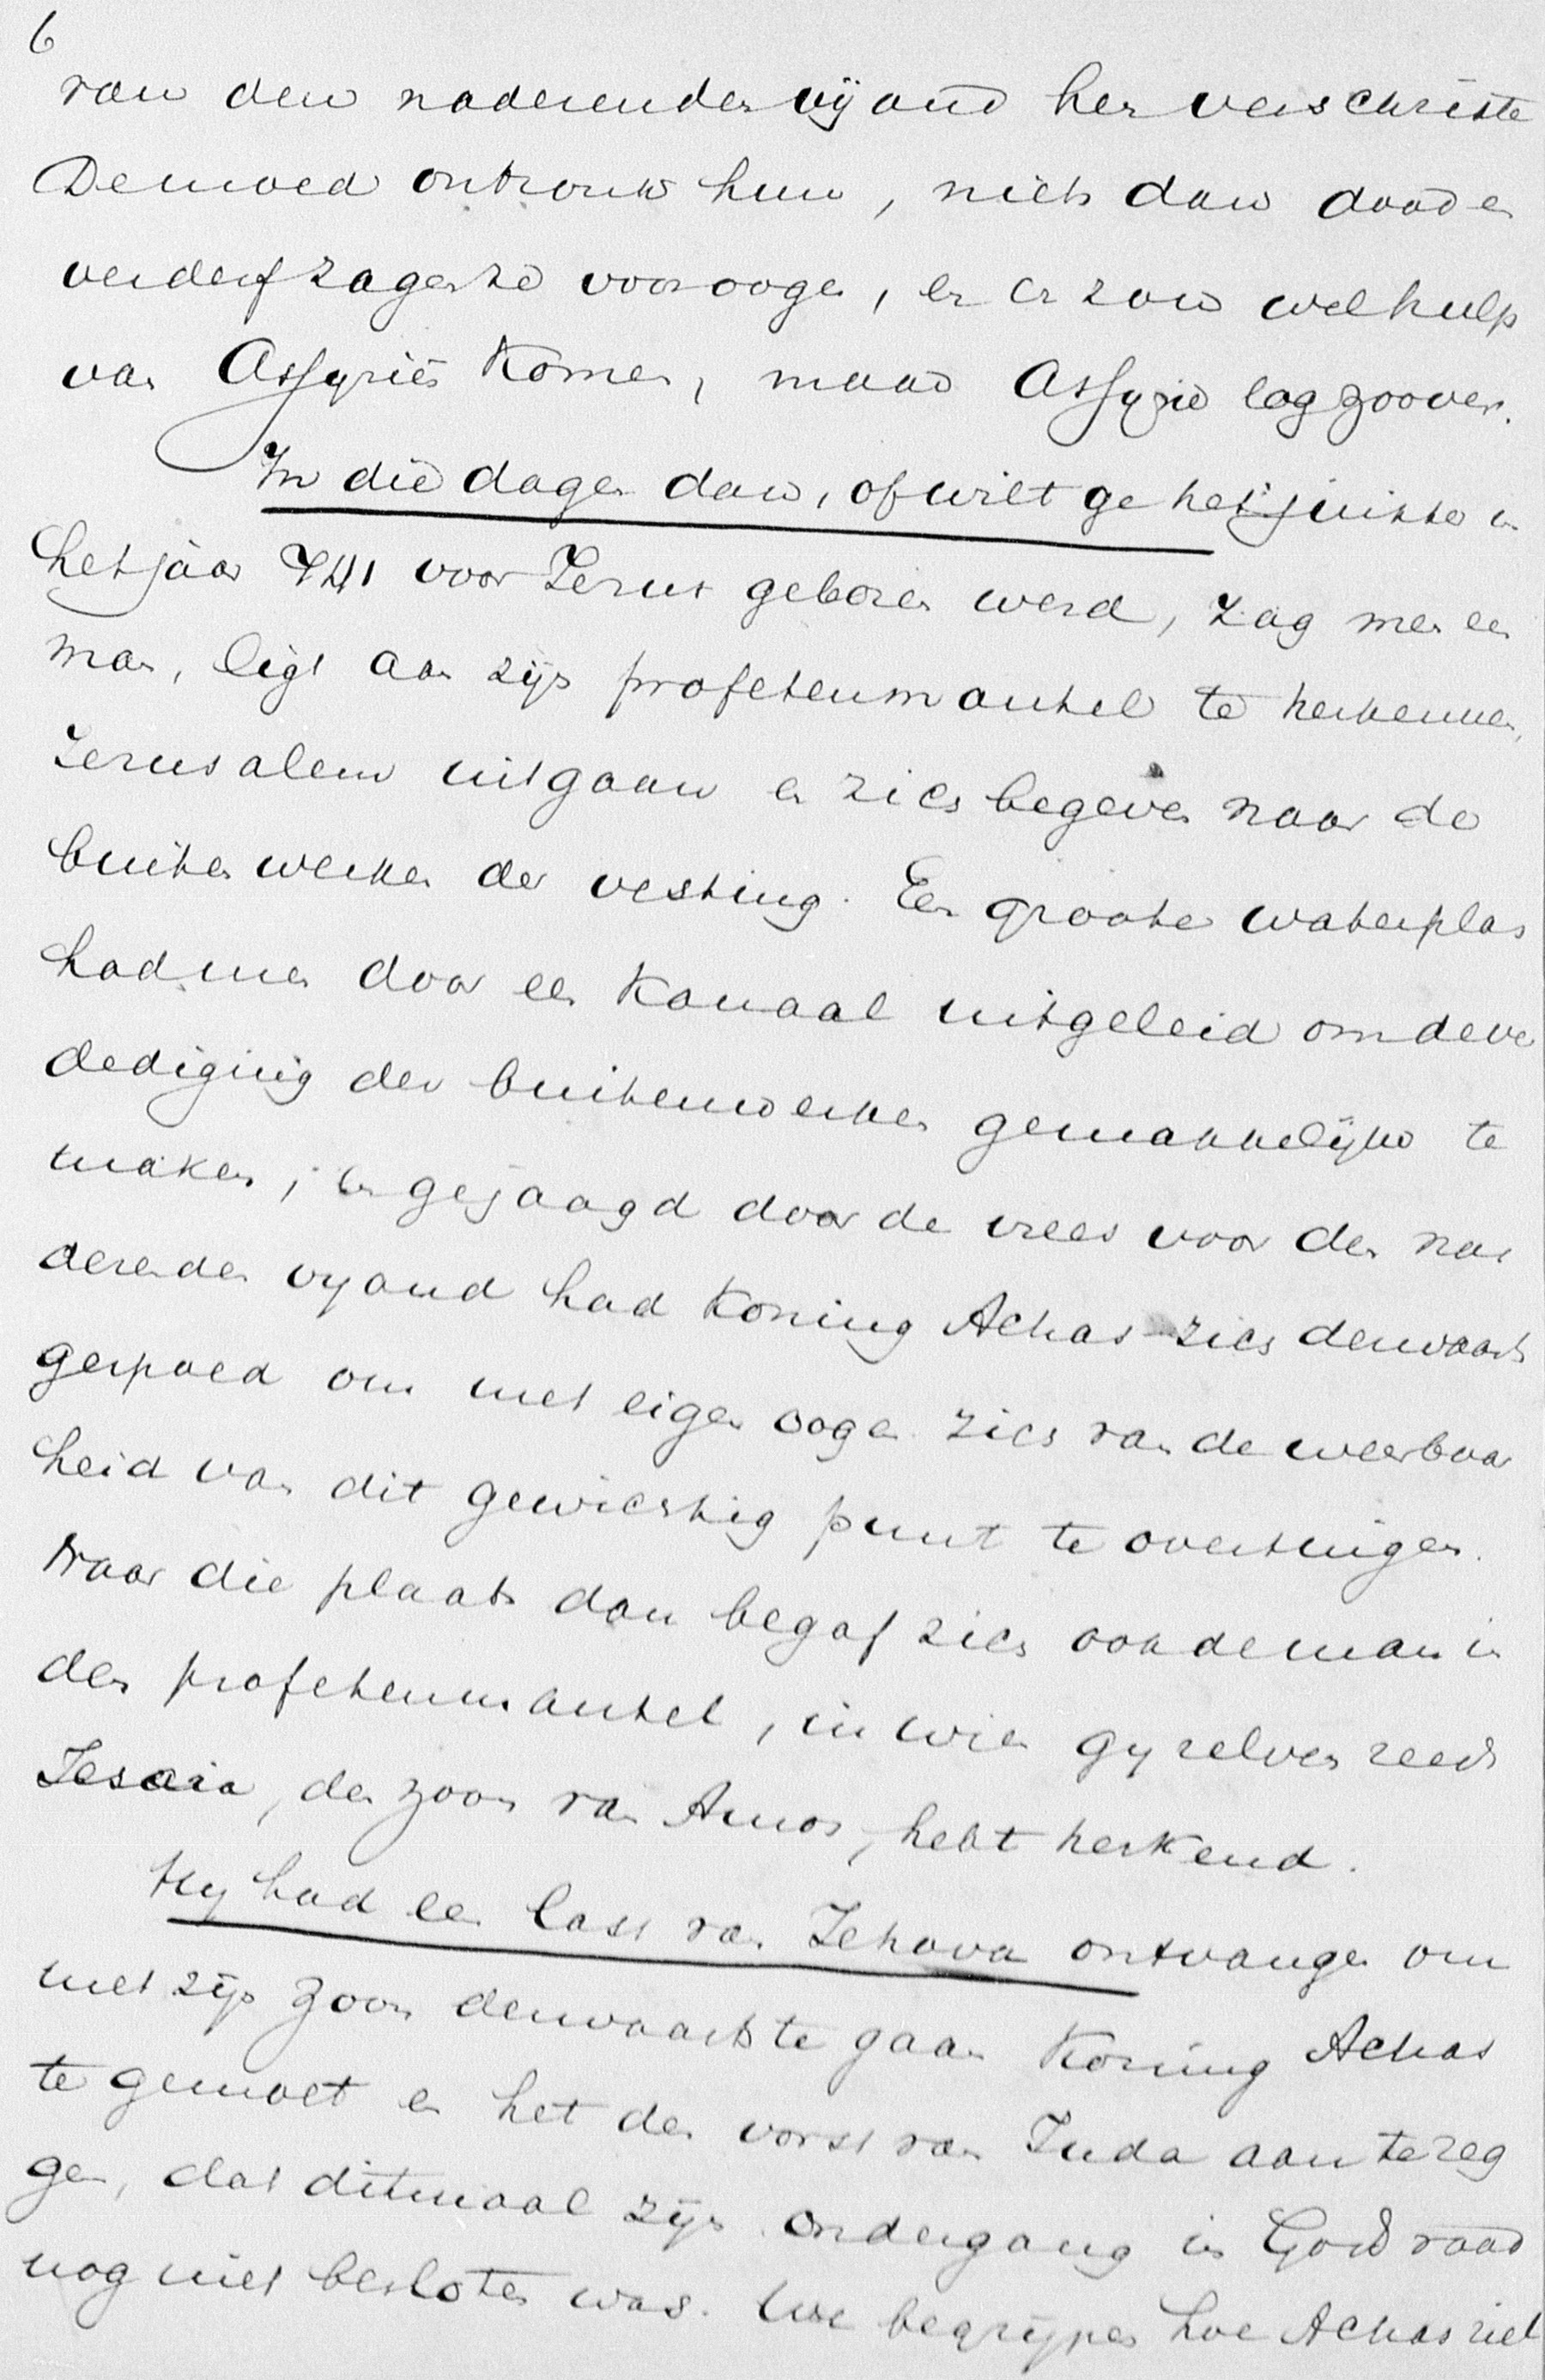 6
van den naderenden vijand hen verschrikte
De moed ontzonk hun, niets dan dood en
verderf zagen ze voor oogen, en er zou wel hulp
van Assyrië komen, maar Assyrië lag zoo ver.
In die dagen dan, of wilt ge het juiste in
het jaar 741 voor Jezus geboren werd, zag men een
man, ligt aan zijn profetenmantel te herkennen,
Jerusalem uitgaan en zich begeven naar de
buitenwerken der vesting. Een groote waterplas
had men door een kanaal uitgeleid om de ver
dediging der buitenwerken gemakkelijk te
maken, en gejaagd door de vrees voor den na
derenden vyand had Koning Achas zich derwaarts
gespoed om met eigen oogen zich van de weerbaar
heid van dit gewichtig punt te overtuigen.
Naar die plaats dan begaf zich ook de man in
den profetenmantel, in wien gy zelven reeds
Jesaia, den zoon van Amos, hebt herkend.
Hy had een last van Jehova ontvangen om
met zijn zoon derwaarts te gaan Koning Achas
te gemoet en het den vorst van Juda aan te zeg
gen, dat ditmaal zijn ondergang in Gods raad
nog niet besloten was. We begrijpen hoe Achas ziel